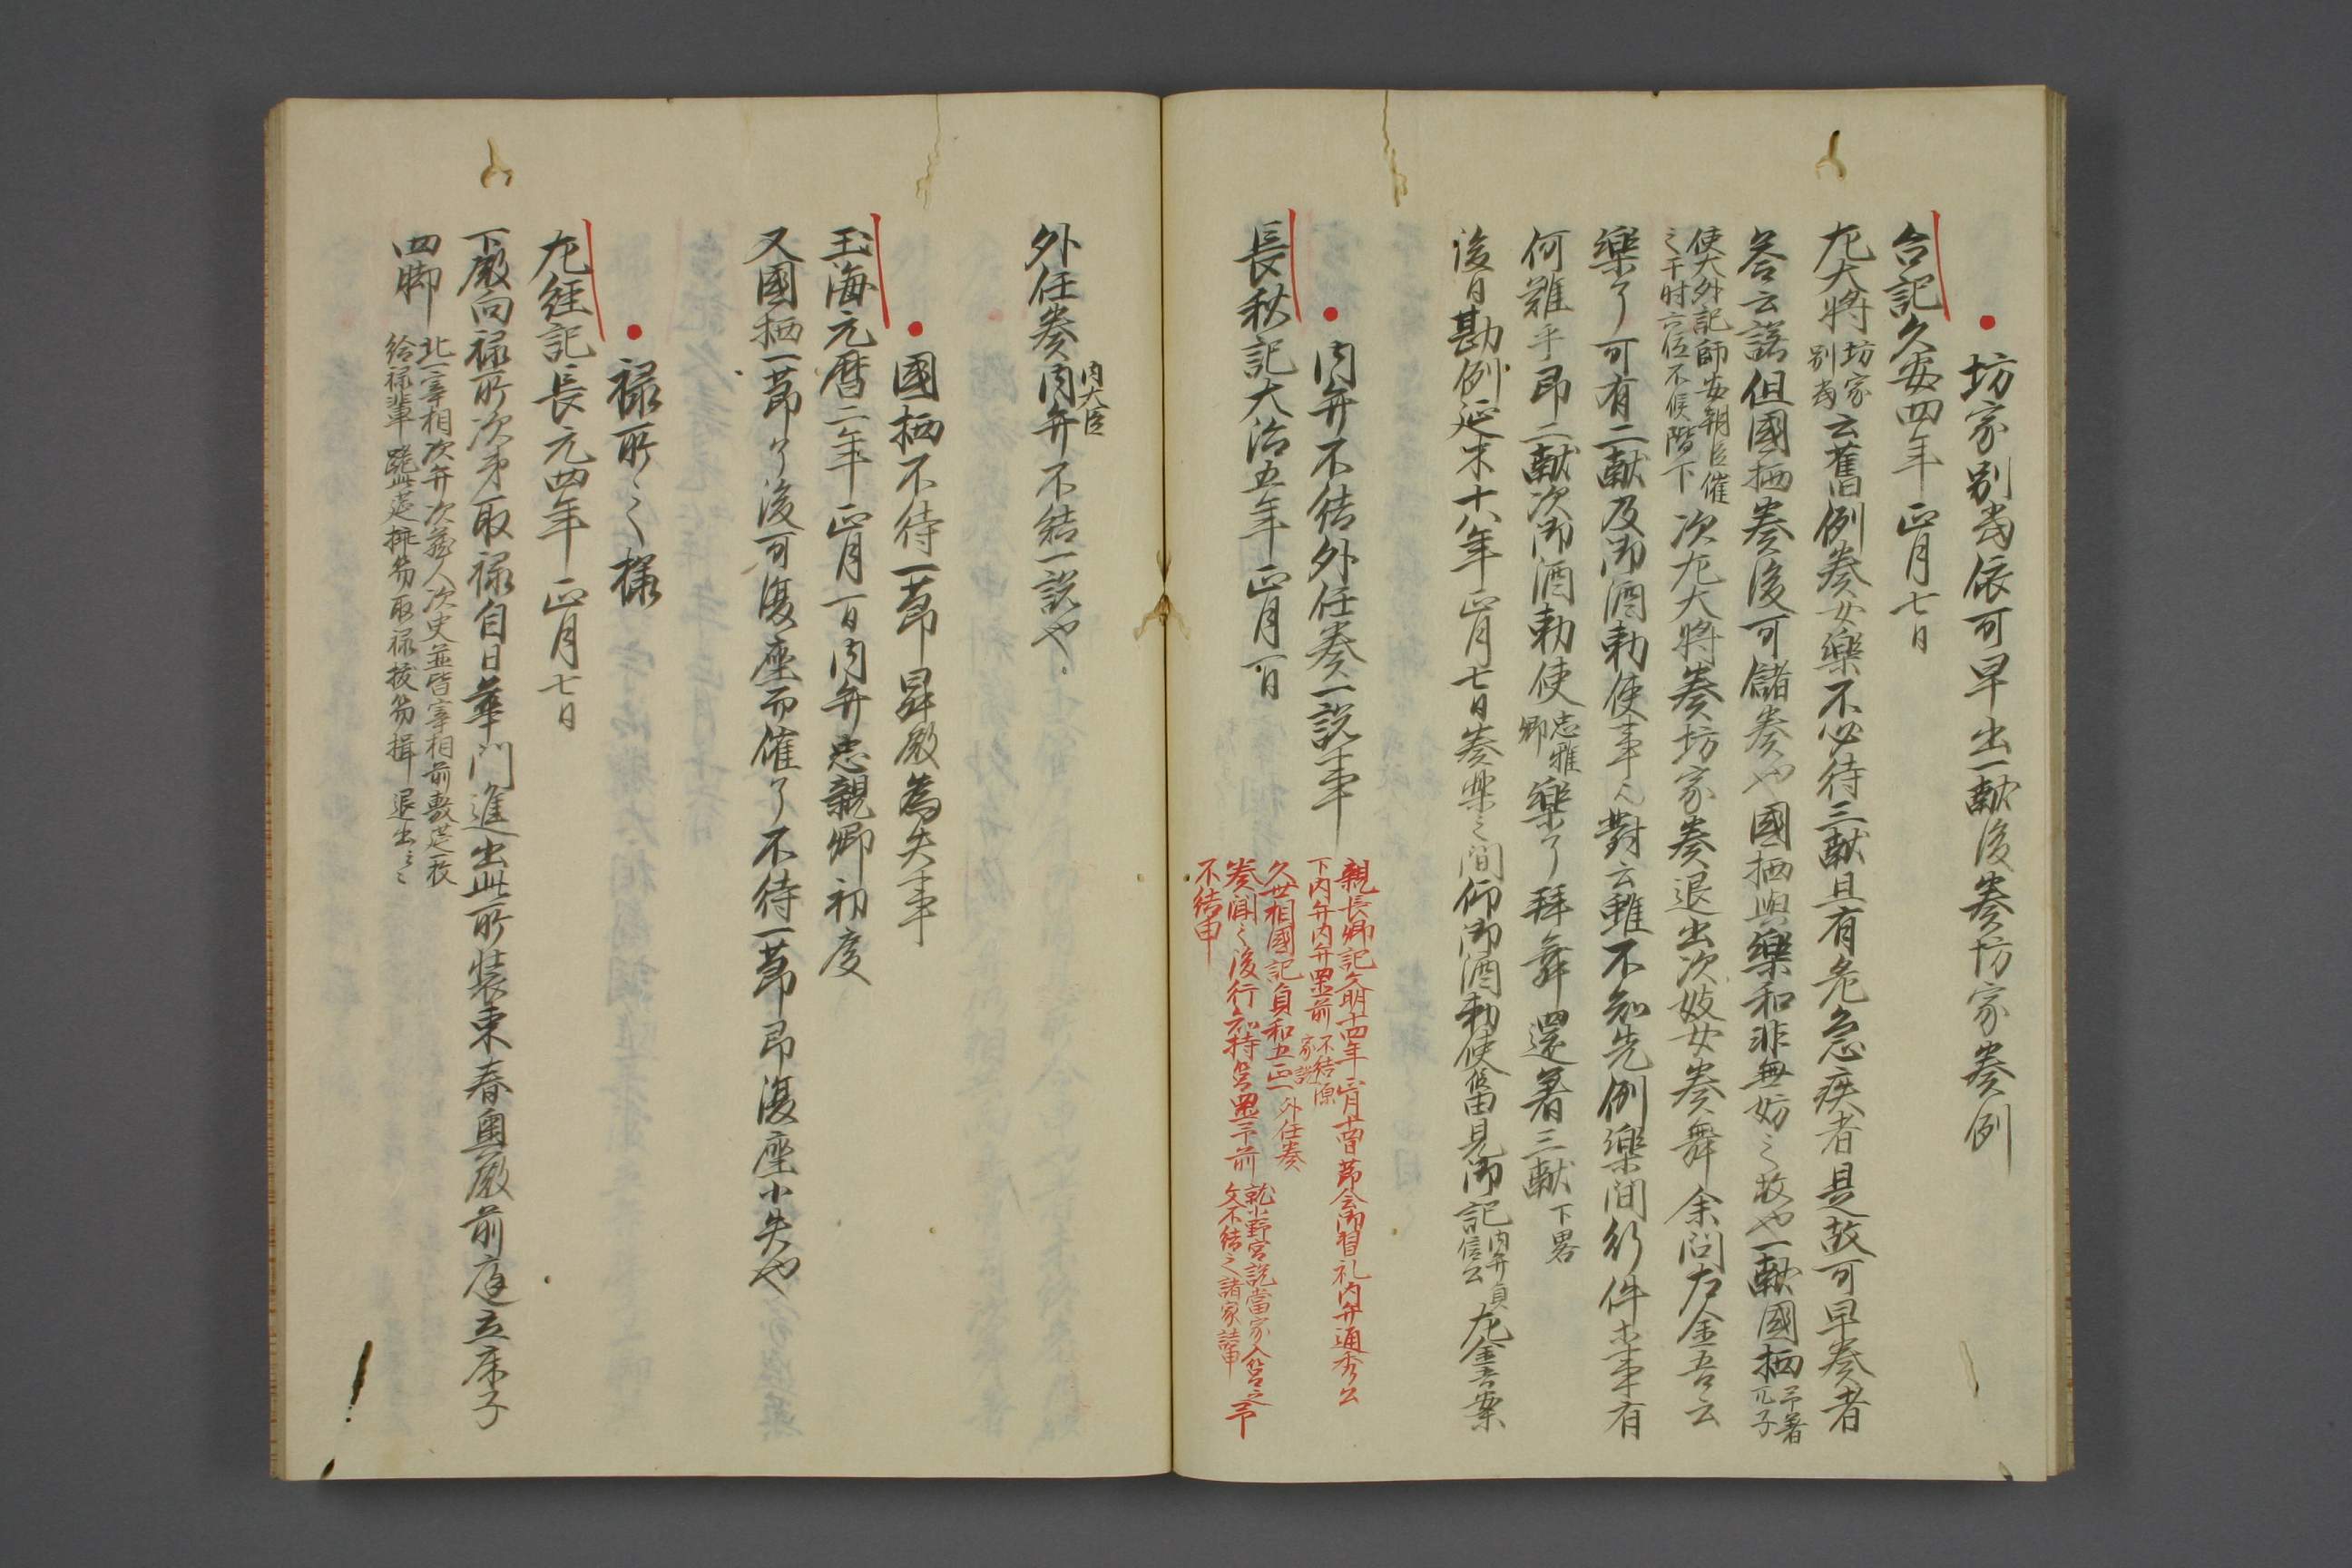 坊家別當依可早出一獻後奏坊家奏例
台記久安四年正月七日
左大將坊家別當云舊例奏女樂不必待三獻且有危急疾者是故可早奏者
答云諾但國栖奏後可儲奏也國栖與樂和非無妨之故也一獻國栖予著兀子
使大外記師安朝臣催之于時六位不候階下次左大將奏坊家奏退出次妓女奏舞余問左金吾云
樂了可有二獻及御酒勅使事乎對云雖不知先例樂間行件等事有
何難乎即二獻次御酒勅使忠雅卿樂了拜舞還著三獻下畧
後日勘例延木十八年正月七日奏樂之間仰御酒勅使由見御記内弁貞信公左金吾案
内弁不結外任奏一説事
親長卿記文明十四年正月十日節会御習礼内弁通秀公
下内弁内弁置前不結源家説
久世相國記貞和五正一外任奏
奏聞之後行知持筥置予前就小野宮説當家入筥之
文不結之諸家結申予
不結申
長秋記大治五年正月一日
外任奏内弁内大臣不結一説也
國栖不待一節昇殿為失事
玉海元暦二年正月一日内弁忠親卿初度
又國栖一節了後可復座而催了不待一節即復座小失也
禄所之樣
左経記長元四年正月七日
下殿向禄所次第取禄自日華門進出此所装束春興殿前庭立床子
四脚北一宰相次弁次蔵人次史並皆宰相前敷莚一枚
給禄輩跪此莚挿笏取禄抜笏揖退出之